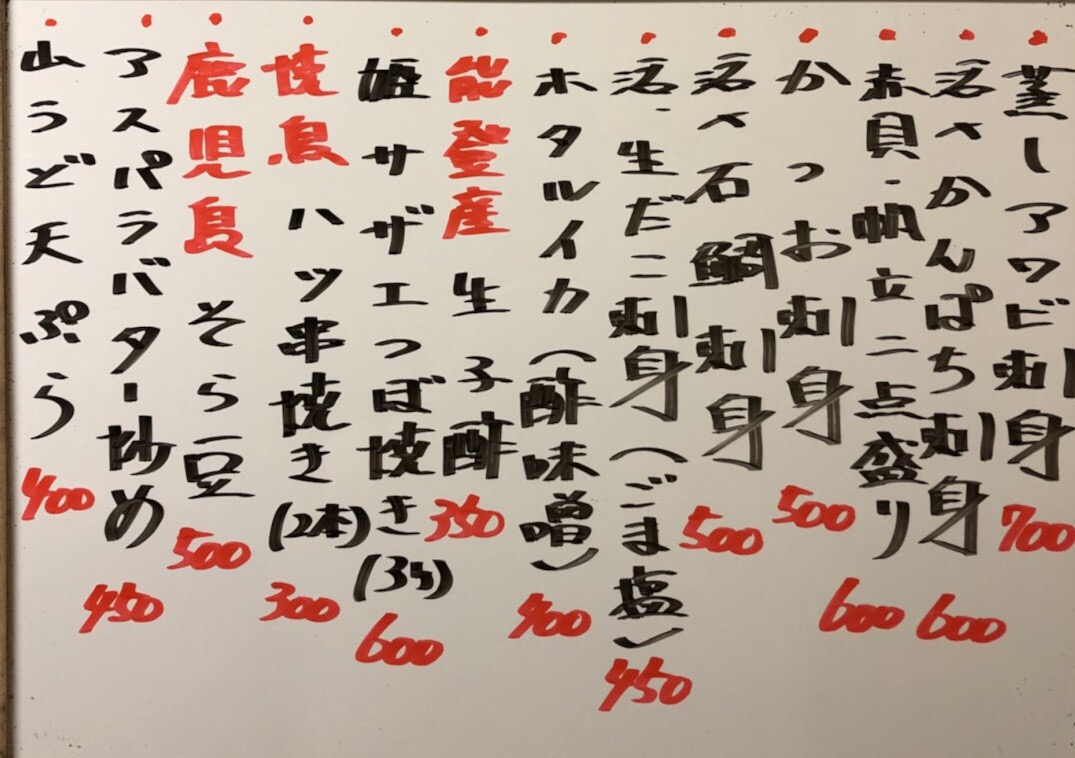 ・蒸しアワビ刺身 700
・活〆かんぱち刺身 600
・赤貝・帆立二点盛り 600
・かつお刺身 500
・活〆石鯛刺身 500
・活・生だこ刺身(ごま塩) 450
・ホタルイカ(酢味噌) 400
・能登産 生子酢 350
・姫サザエつぼ焼き(3ヶ) 600
・焼鳥 ハツ串焼き(2本) 300
・鹿児島 そら豆 500
・アスパラバター炒め 450
・山うど天ぷら 400